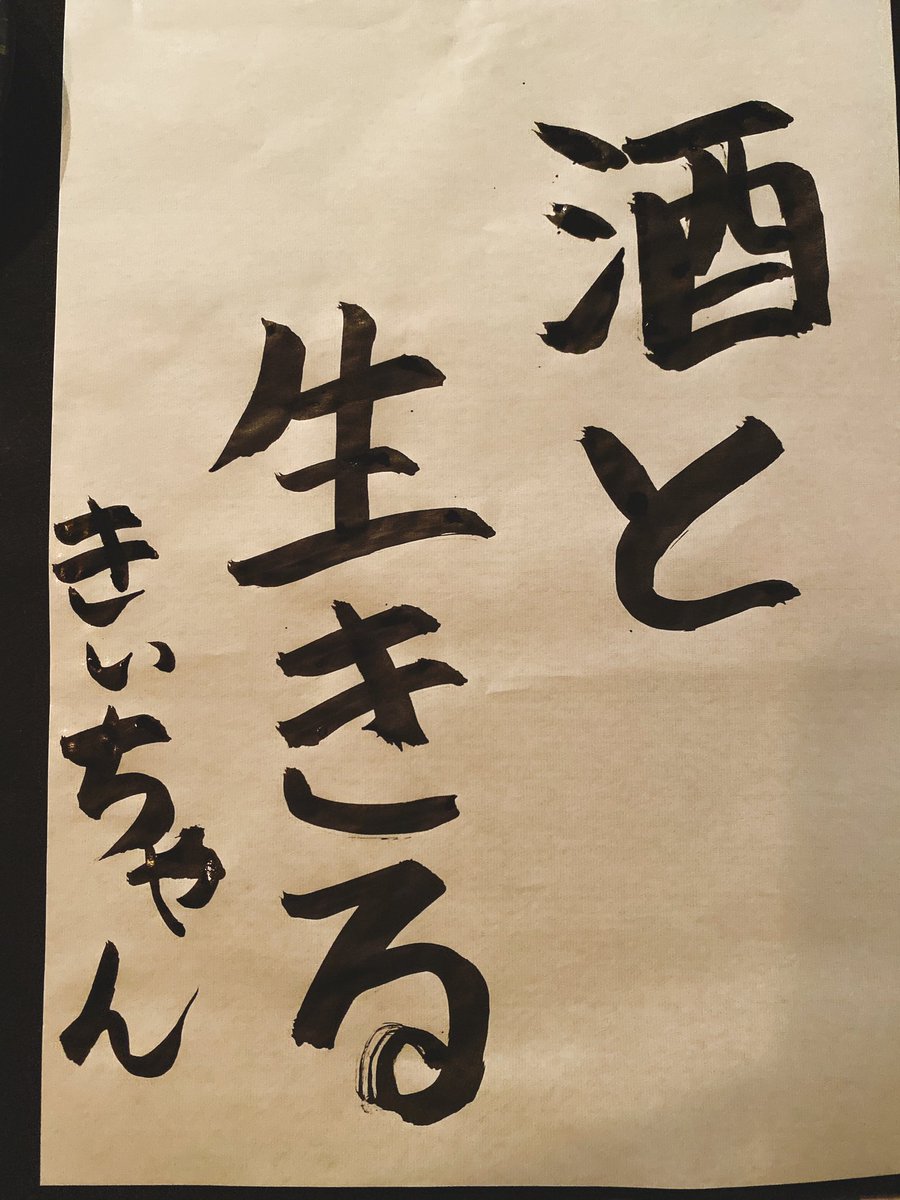 酒と
生きる
きぃちゃん